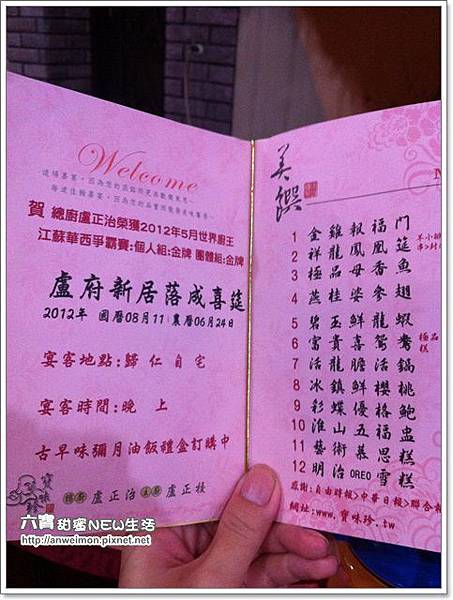 Welcome
賀 總廚盧正治榮獲2012年5月世界廚王
江蘇華西爭霸賽:個人組:金牌 團體組:金牌
盧府新居落成喜筵
2012年 國曆08月11 農曆06月24日
宴客地點:歸 仁 自宅
宴客時間:晚 上
古早味彌月油飯禮盒訂購中
總廚 盧正治 主廚 盧正枝
美饌
1 金雞報福門
2 祥龍鳳凰筵
3 極品母香魚
4 燕桂婆參翅
5 碧玉鮮龍蝦
6 富貴喜鴛鴦
7 活龍膽活鍋
8 冰鎮鮮櫻桃
9 彩蝶優格鮑
10 淮山五福盅
11 藝術慕思糕
12 明治OREO雪糕
極品
糕
感謝:自由時報>中華日報>聯合報
網址:www.寶味珍.tw
六寶甜蜜NEW生活
http://anweimon.pixnet.net